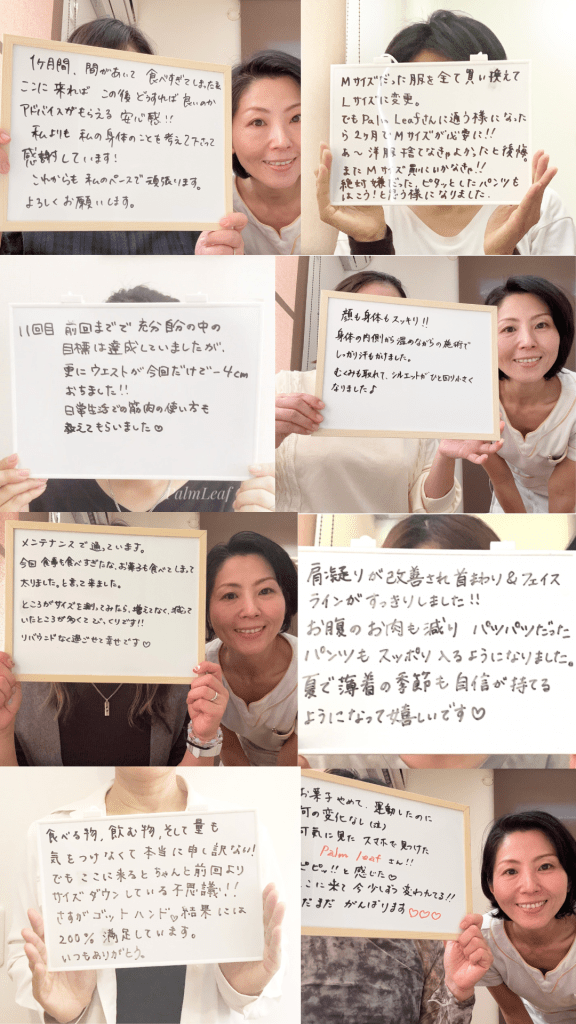 1ヶ月間、間があいて 食べすぎてしまっても
ここに来れば この後 どうすれば良いのか
アドバイスがもらえる 安心感!!
私よりも 私の身体のことを考えて下さって
感謝しています!
これからも 私のペースで頑張ります。
よろしくお願いします。
Mサイズだった服を全て買い換えて
Lサイズに変更。
でもPalm Leafさんに通う様になったら
2ヶ月でMサイズが必要に!!
あ〜洋服捨てなきゃよかったと後悔。
またMサイズ買いにいかなきゃ!!
絶対嫌だった、ピタッとしたパンツも
はこう!と思う様になりました。
11回目 前回までで 充分自分の中の
目標は達成していましたが、
更にウエストが今回だけで-4cm
おちました!!
日常生活での筋肉の使い方も
教えてもらいました♡
PalmLeaf
顔も身体もスッキリ!!
身体の内側から温めながらの施術で
しっかり汗もかけました。
むくみも取れて、シルエットがひと回り小さく
なりました♪
メンテナンスで通っています。
今回 食事も食べすぎたな、お菓子も食べてしまって
太りました。と言って来ました。
ところがサイズを測ってみたら、増えてなく、減って
いたところが多くてびっくりです!!
リバウンドなく過ごせて幸せです♡
肩凝りが改善され首まわり&フェイス
ラインがすっきりしました!!
お腹のお肉も減り パツパツだった
パンツも スッポリ入るようになりました。
夏で薄着の季節も自信が持てる
ようになって嬉しいです♡
食べる物、飲む物、そして量も
気をつけなくて本当に申し訳ない!
でも ここに来るとちゃんと前回より
サイズダウンしている不思議!!
さすがゴットハンド♡結果には
200%満足しています。
いつもありがとう。
お菓子やめて、運動したのに
何の変化なし(泣)
何気に見た スマホで見つけた
Palm leaf さん!!
ピピッ!!と感じた♡
ここに来て 今少しずつ 変われてる!!
まだまだ がんばります♡♡♡